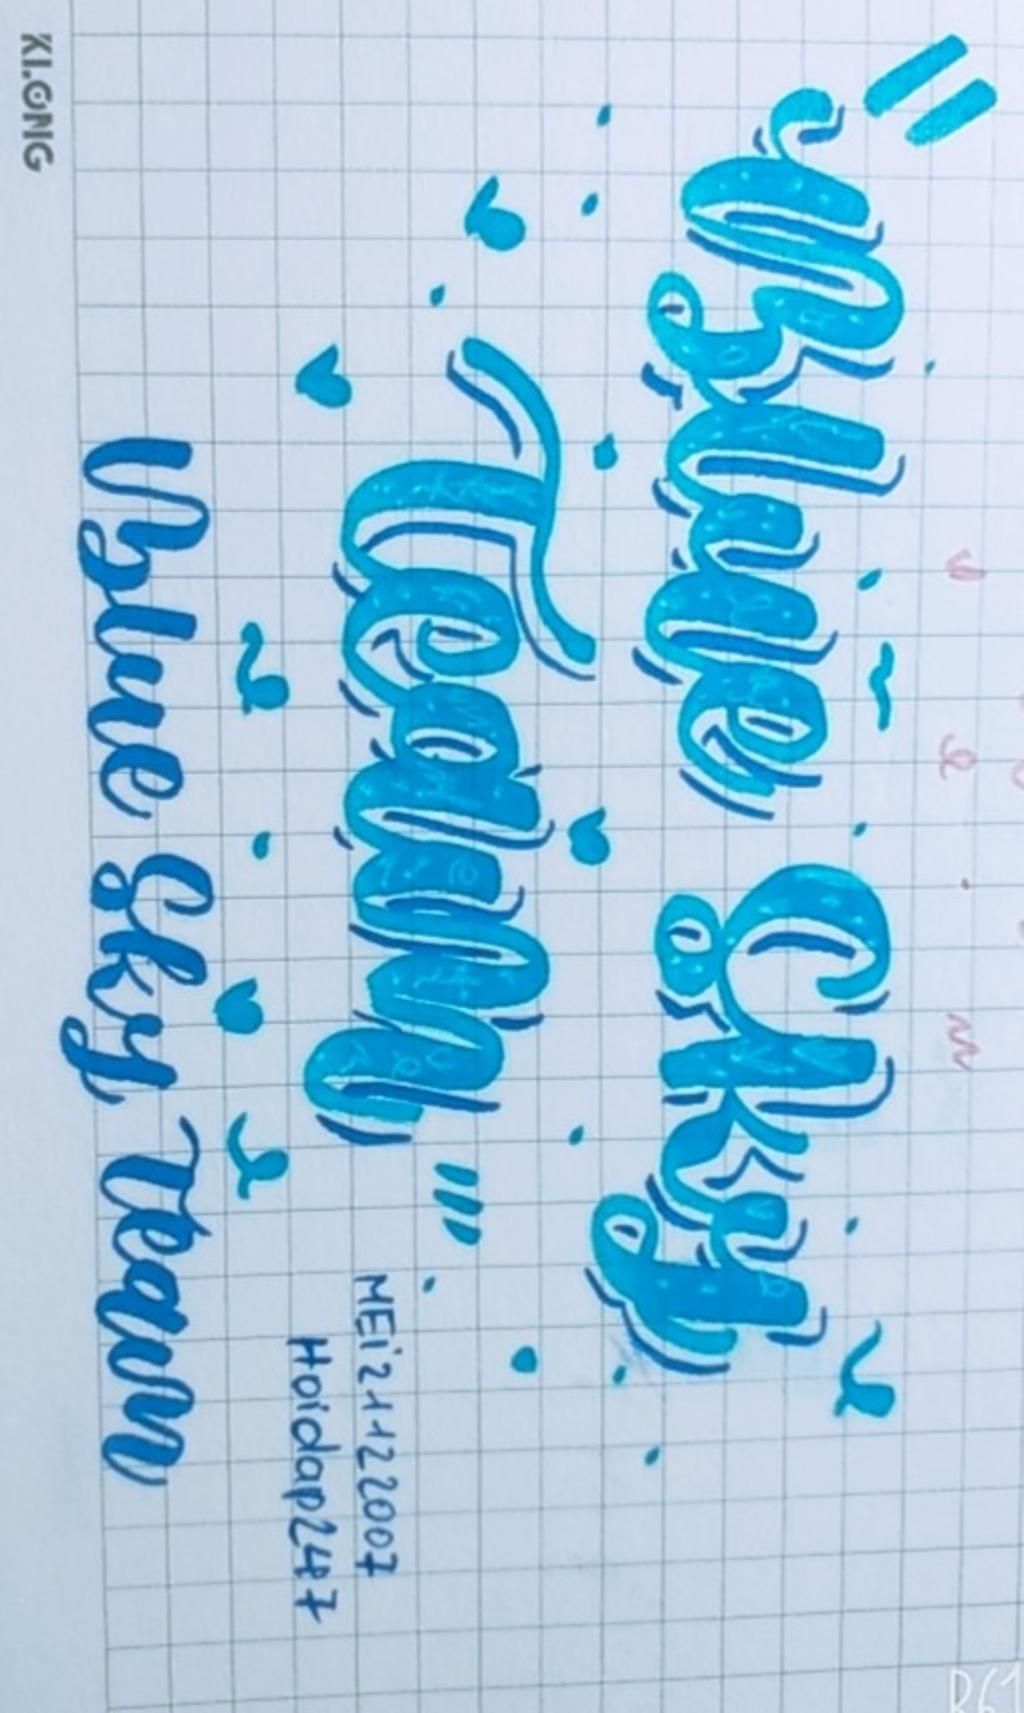 "Blue Sky
Team"
MEi21122007
Hoidap247
Blue Sky Team
KLONG